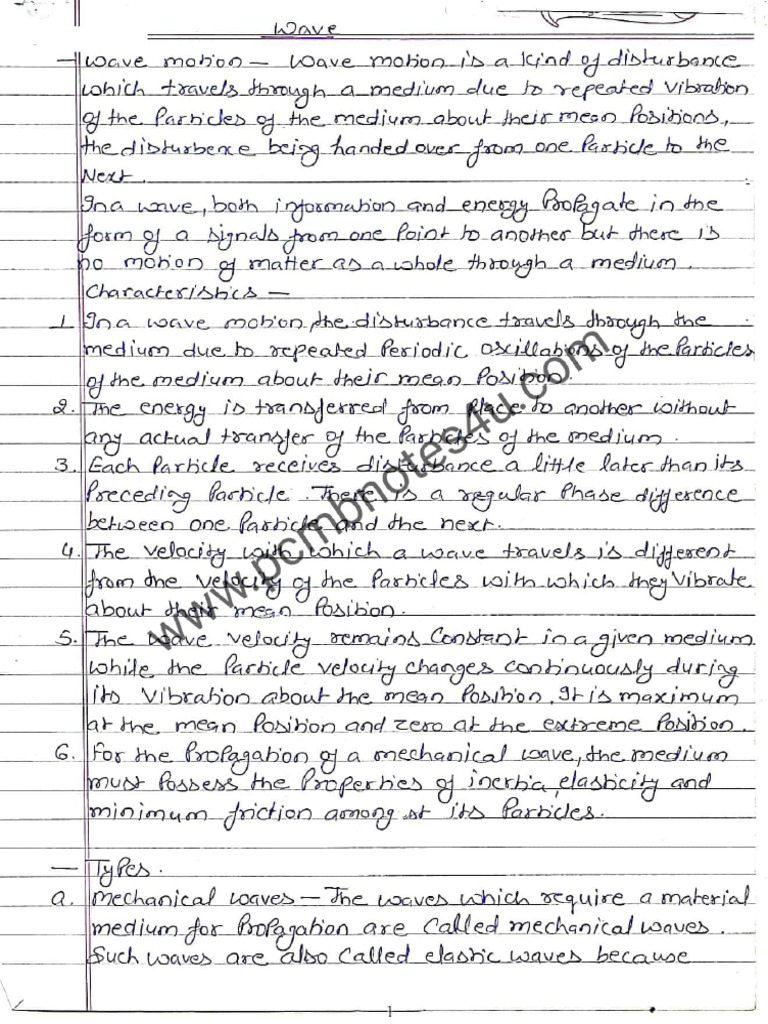 Wave
— Wave motion — Wave motion is a kind of disturbance
which travels through a medium due to repeated vibration
of the Particles of the medium about their mean Positions,
the disturbence being handed over from one Particle to the
Next.
In a wave, both information and energy Propagate in the
form of a signals from one Point to another but there is
no motion of matter as a whole through a medium.
Characteristics —
1. In a wave motion, the disturbance travels through the
medium due to repeated Periodic oscillations of the Particles
of the medium about their mean Position.
2. The energy is transferred from Place to another without
any actual transfer of the Particles of the medium.
3. Each Particle receives disturbance a little later than its
Preceding Particle. There is a regular Phase difference
between one Particle and the next.
4. The velocity with which a wave travels is different
from the velocity of the Particles with which they vibrate
about their mean Position.
5. The wave velocity remains constant in a given medium
while the Particle velocity changes continuously during
its vibration about the mean Position. It is maximum
at the mean Position and zero at the extreme Position.
6. For the Propagation of a mechanical wave, the medium
must Possess the Properties of inertia, elasticity and
minimum friction among st its Particles.
— Types.
a. Mechanical waves — The waves which require a material
medium for Propagation are called mechanical waves.
Such waves are also called elastic waves because
1
www.pcmbnotes4u.com